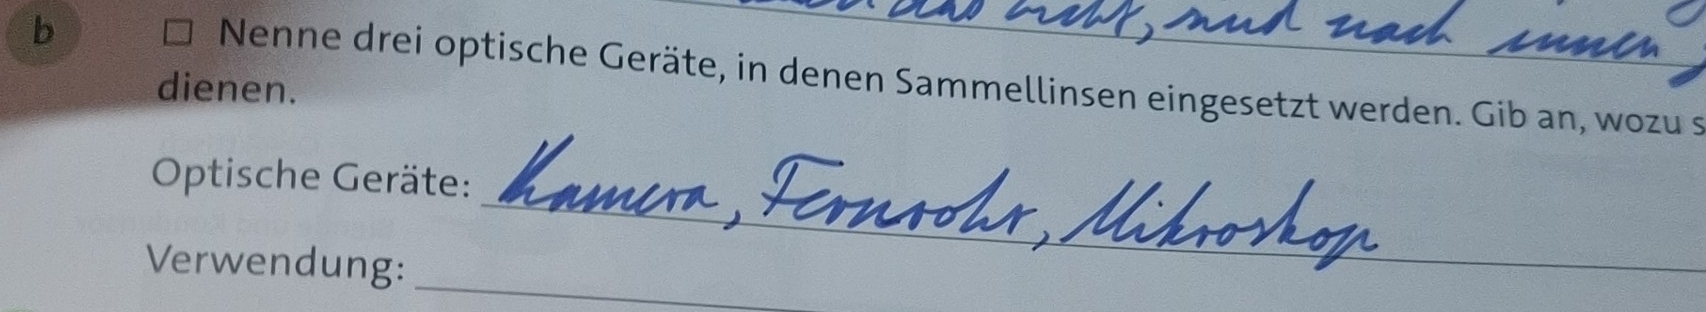 das nicht, sind nach innen
b □ Nenne drei optische Geräte, in denen Sammellinsen eingesetzt werden. Gib an, wozu s
dienen.
Optische Geräte: Kamera, Fernrohr, Mikroskop
Verwendung: